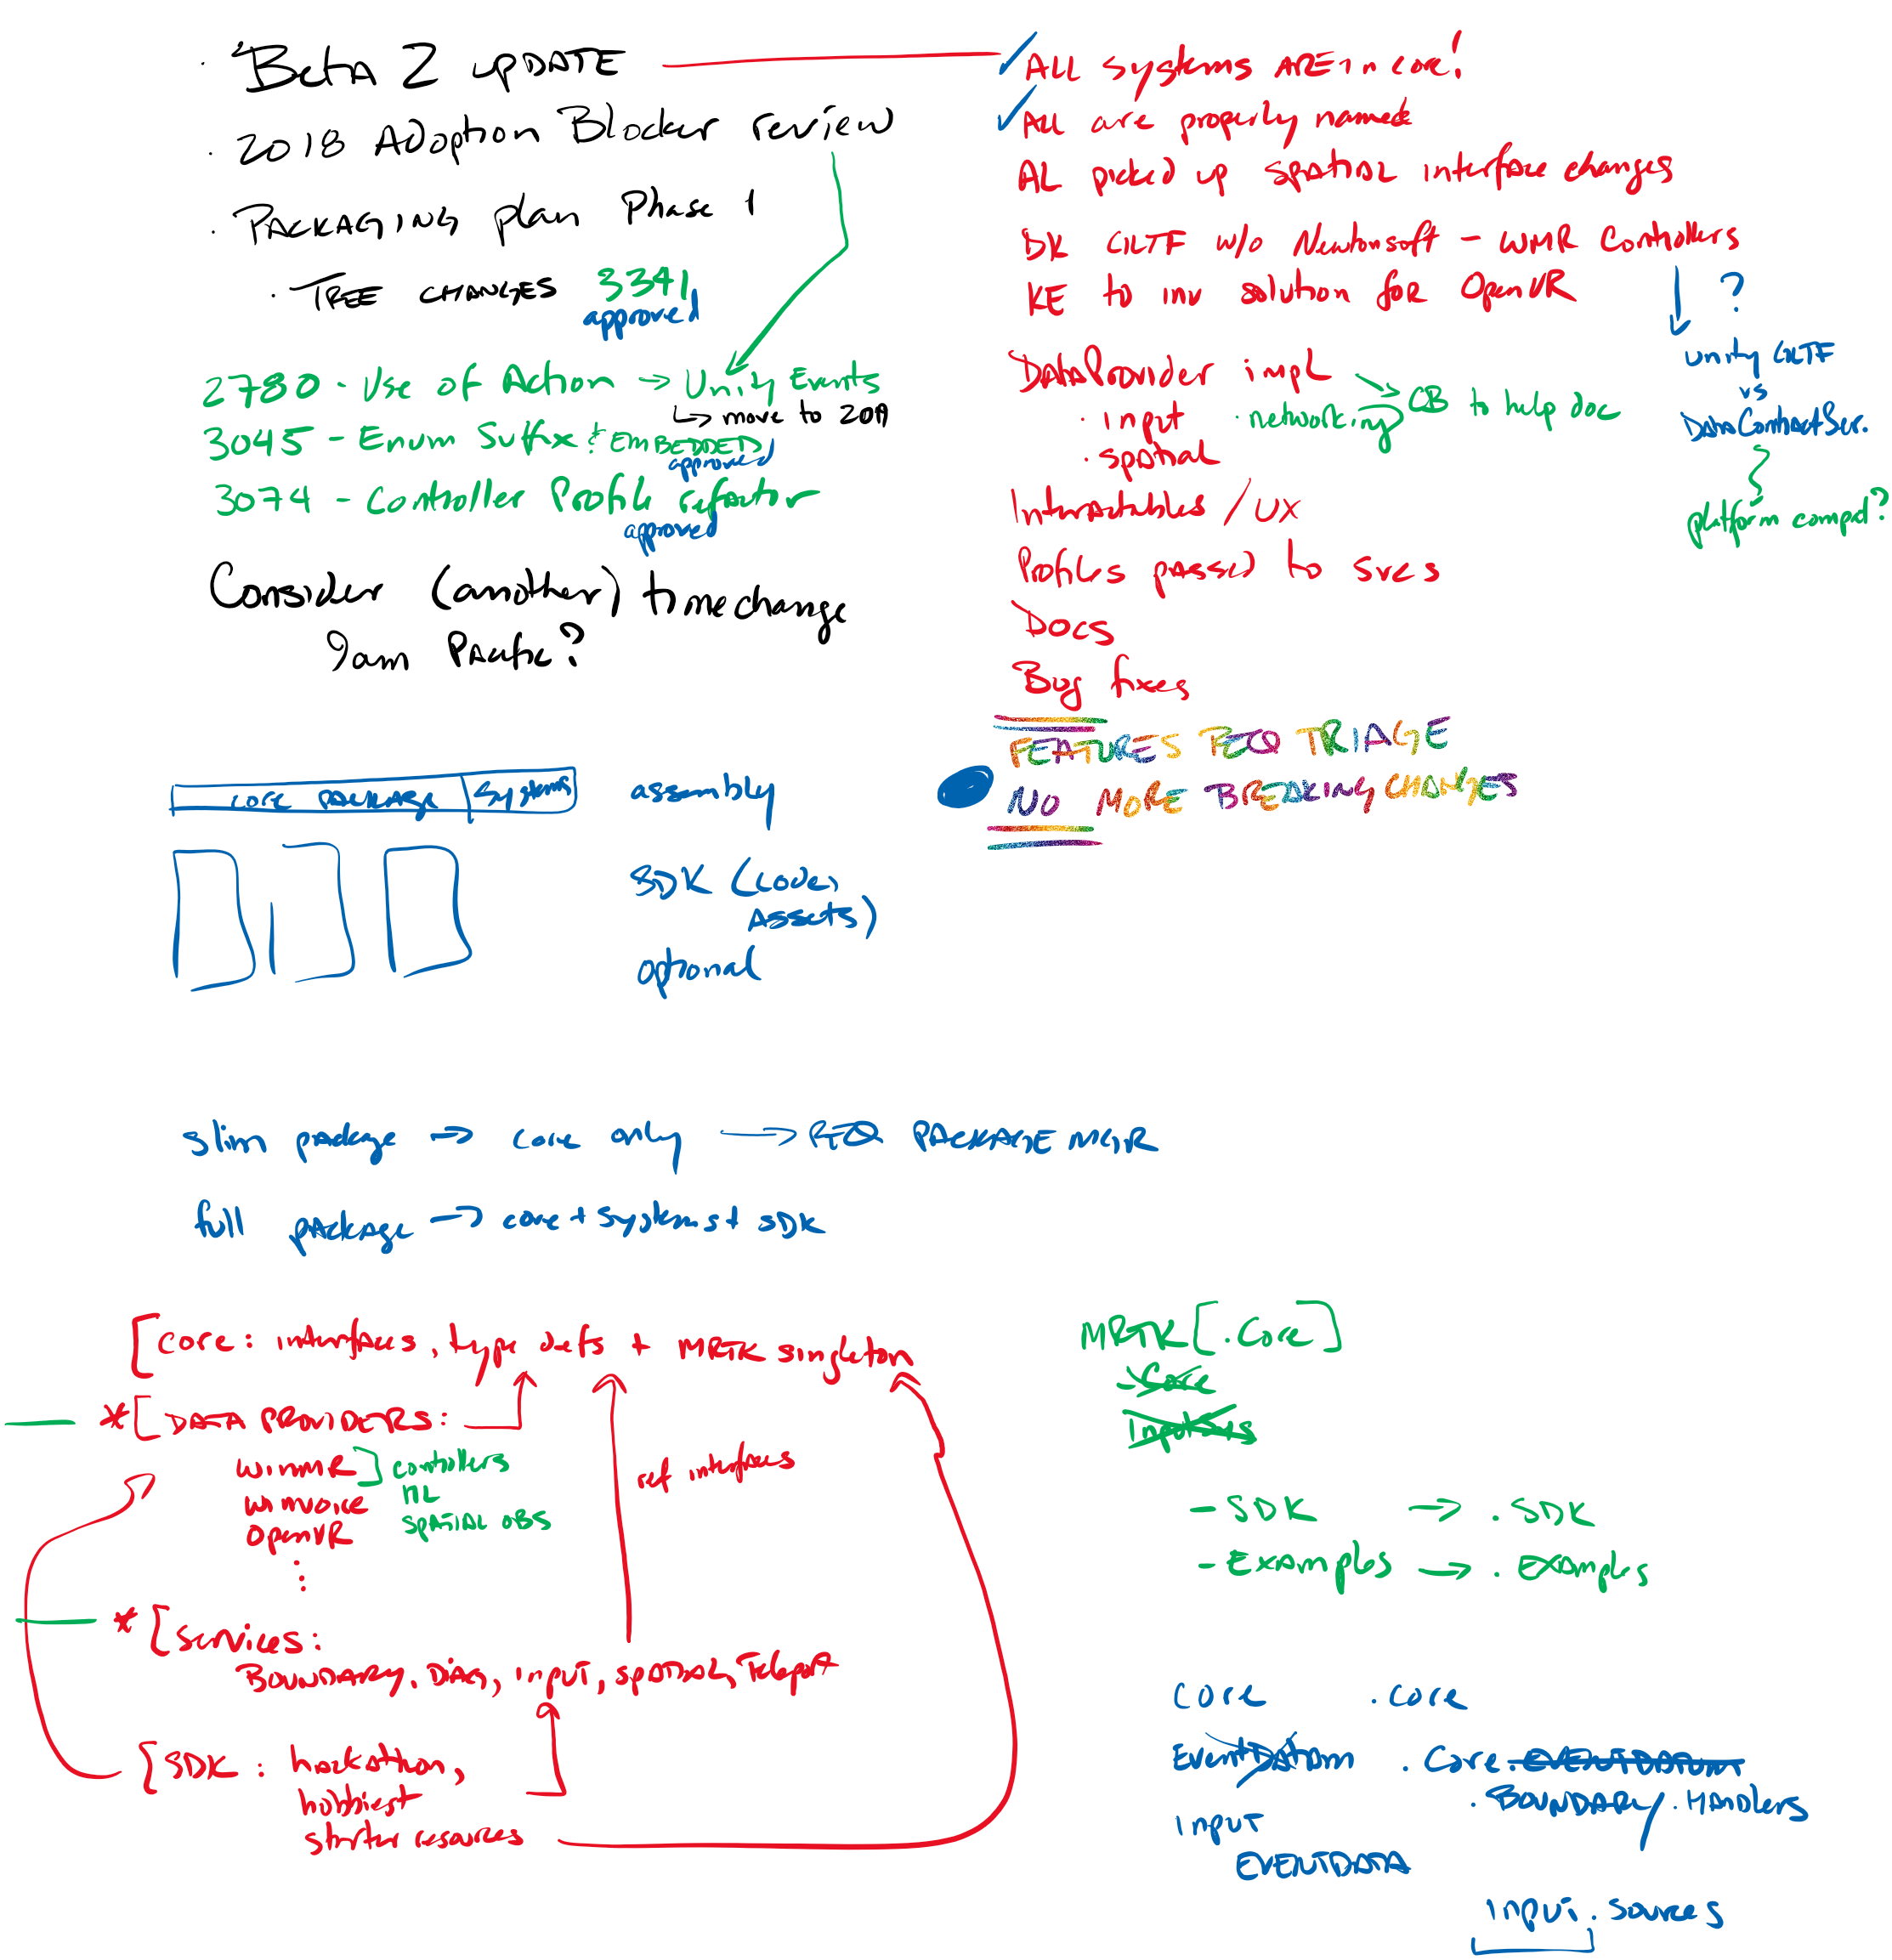 · Beta 2 UPDATE
· 2018 Adoption Blocker review
· PACKAGING plan Phase 1
· TREE CHANGES 3341
approved
2780 - Use of Action → Unity Events
↳ move to 2019
3045 - Enum Suffix & EMBEDDED
approved
3074 - Controller Profile refactor
approved
Consider (another) time change
9am Pacific?
✓ ALL systems ARE in core!
✓ All are properly named
AL picked up SPATIAL interface changes
DK GLTF w/o Newtonsoft - WMR Controllers
KE to inv solution for OpenVR
?
unity GLTF
vs
DataContractSer.
platform compat?
DataProvider impl
· input · networking → CB to help doc
· spatial
Interactables / UX
Profiles passed to svcs
Docs
Bug fixes
FEATURES REQ TRIAGE
NO MORE BREAKING CHANGES
core PACKAGE Systems
assembly
SDK (code, Assets)
optional
slim package → core only → REQ PACKAGE MGR
full package → core + systems + SDK
[core: interfaces, type defs + MRTK singleton
*[DATA PROVIDERS:
WinMR ] controllers
winvoice
OpenVR SPATIAL OBS
⋮
ref interfaces
*[Services:
BOUNDARY, DIAG, INPUT, SPATIAL, Teleport
[SDK: hackathon,
hobbiest
starter resources
MRTK[.Core]
- Core
InputSys
- SDK → .SDK
- Examples → .Examples
core .core
EventDatum .Core.EVENTDATUM
.BOUNDARY.Handlers
INPUT
EVENTDATA
INPUT.Sources